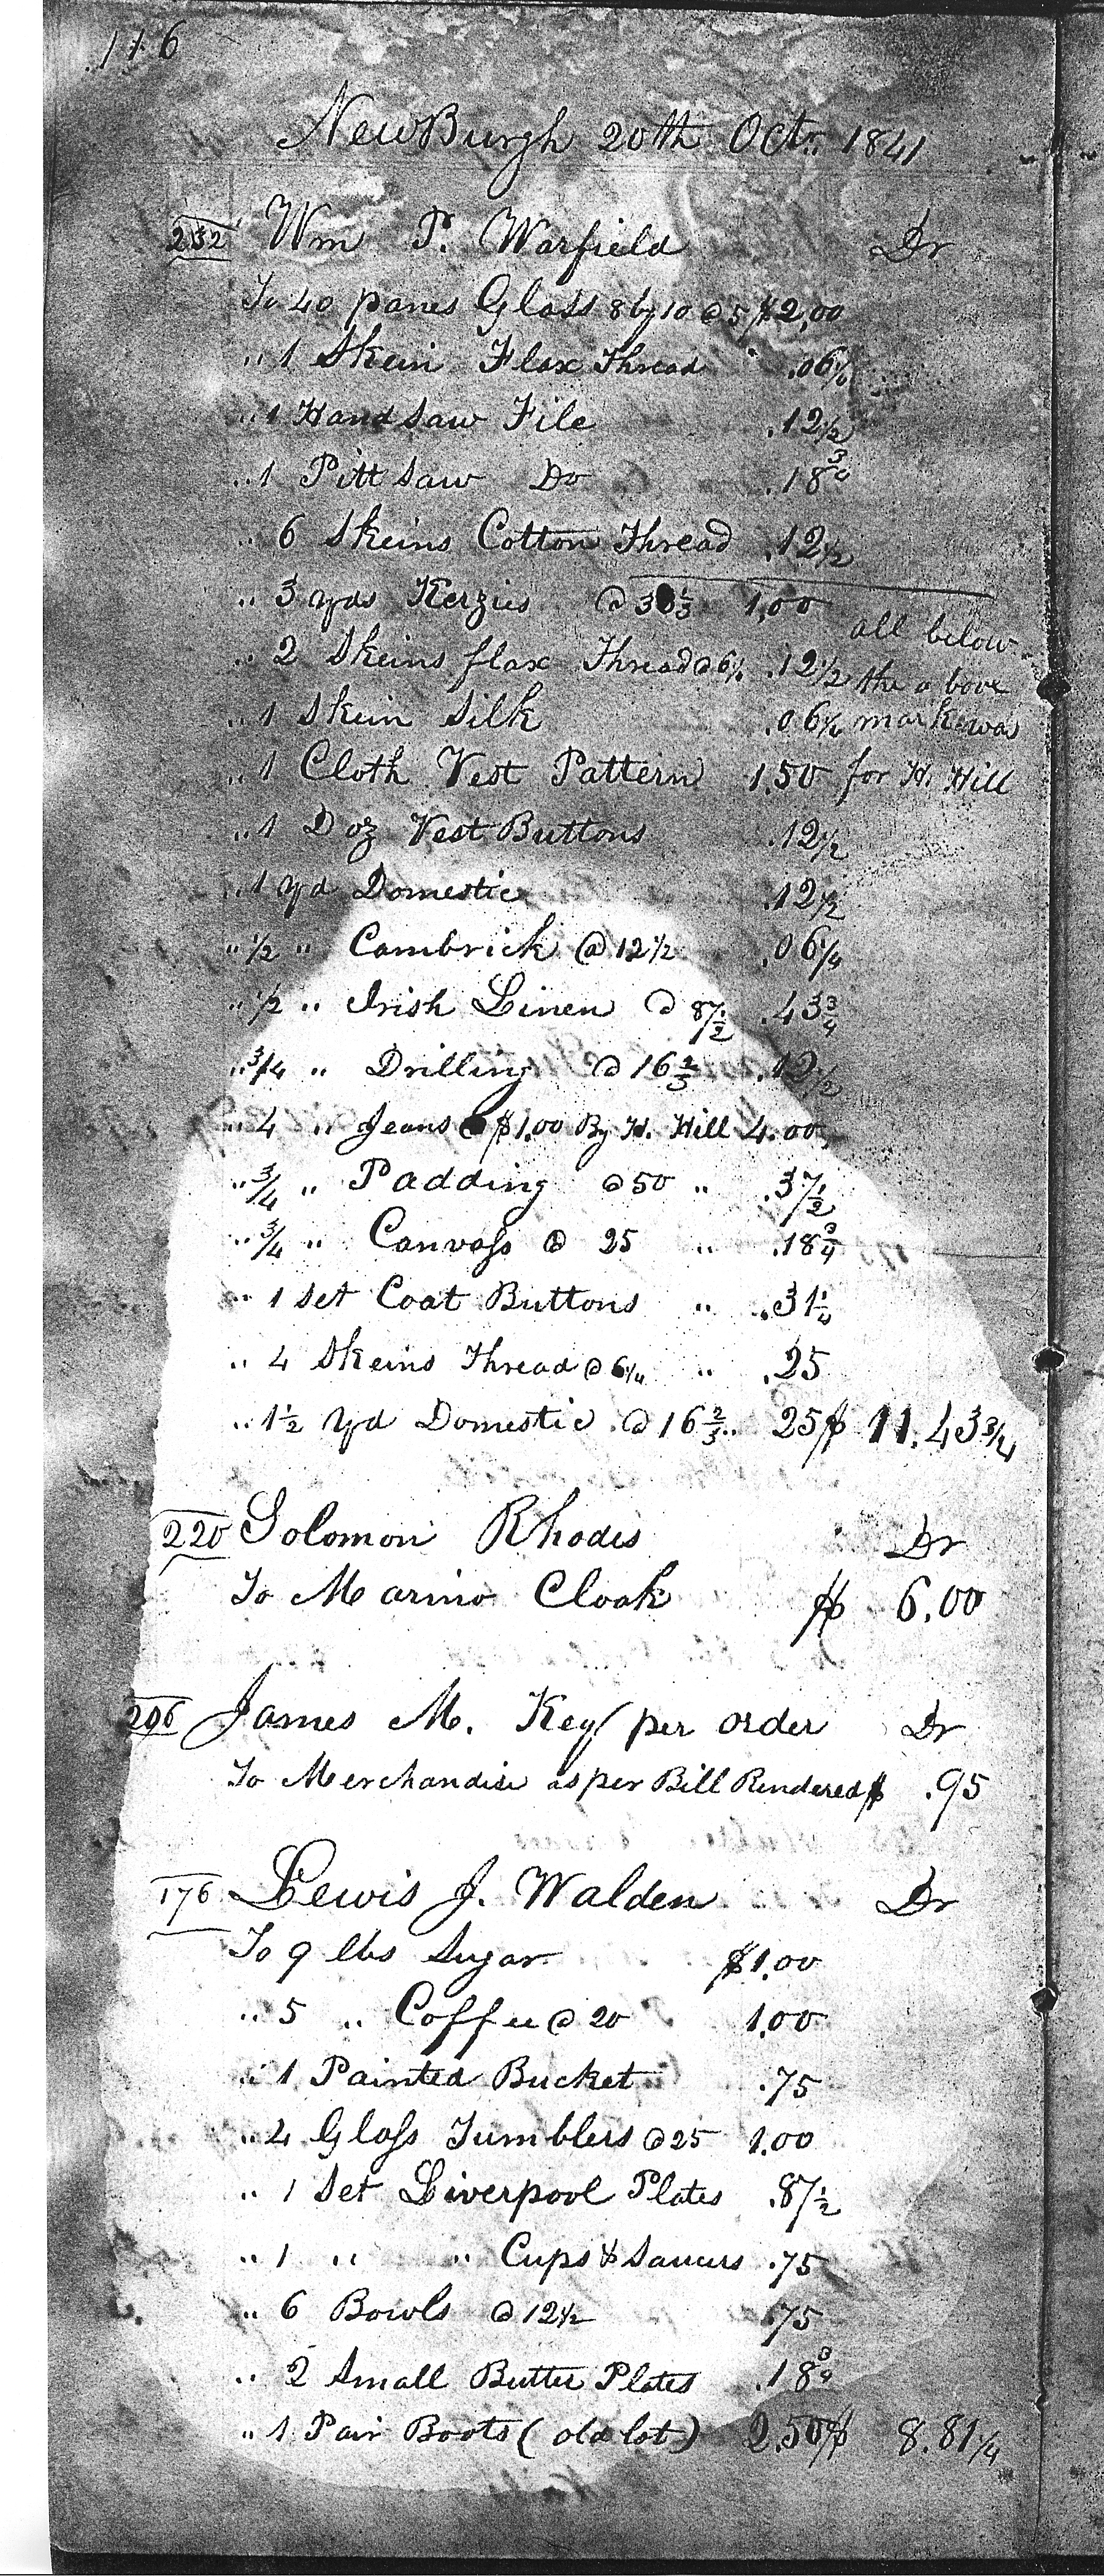 116
NewBurgh 20th Octr. 1841
232 Wm P. Warfield Dr
To 40 panes Glass 8 by 10 @ 5 $2,00
" 1 Skein Flax Thread .06¼
" 1 Handsaw File .12½
" 1 Pitt saw Do .18¾
" 6 Skeins Cotton Thread .12½
" 3 yds Kerzies @ 33⅓ 1,00
all below
" 2 Skeins flax Thread @ 6¼ .12½ the above
" 1 Skein Silk .06¼ mark was
" 1 Cloth Vest Pattern 1.50 for H. Hill
" 1 Doz Vest Buttons .12½
" 1 Yd Domestic .12½
" ½ " Cambrick @ 12½ .06¼
" ½ " Irish Linen @ 87½ .43¾
" ¾ " Drilling @ 16⅔ .12½
" 4 " Jeans @ $1.00 By H. Hill 4.00
" ¾ " Padding @ 50 " .37½
" ¾ " Canvass @ 25 " .18¾
" 1 Set Coat Buttons " .31¼
" 4 Skeins Thread @ 6¼ " .25
" 1½ Yd Domestic @ 16⅔ " 25 $ 11.43¾
220 Solomon Rhodes Dr
To Marino Cloak $ 6.00
206 James M. Key (per order Dr
To Merchandise as per Bill Rendered $ .95
176 Lewis J. Walden Dr
To 9 lbs Sugar $1.00
" 5 " Coffee @ 20 1.00
" 1 Painted Bucket .75
" 4 Glass Tumblers @ 25 1.00
" 1 Set Liverpool Plates .87½
" 1 " " Cups & Saucers .75
" 6 Bowls @ 12½ .75
" 2 Small Butter Plates .18¾
" 1 Pair Boots (old lot) 2.50 $ 8.81¼